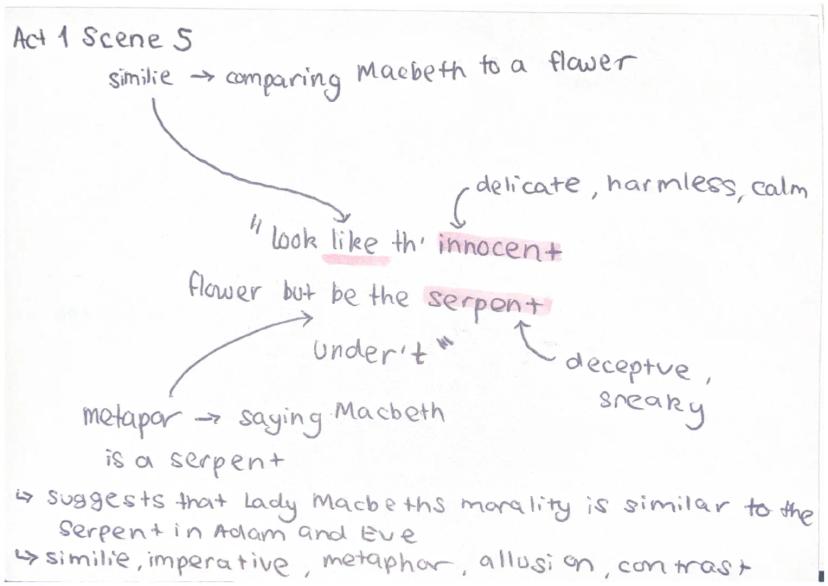 Act 1 Scene 5
similie → comparing Macbeth to a flower
delicate, harmless, calm
"look like th' innocent
flower but be the serpent
under't"
deceptve,
sneaky
metapor → saying Macbeth
is a serpent
↳ suggests that Lady Macbeths morality is similar to the
serpent in Adam and Eve
↳ similie, imperative, metaphor, allusion, contrast